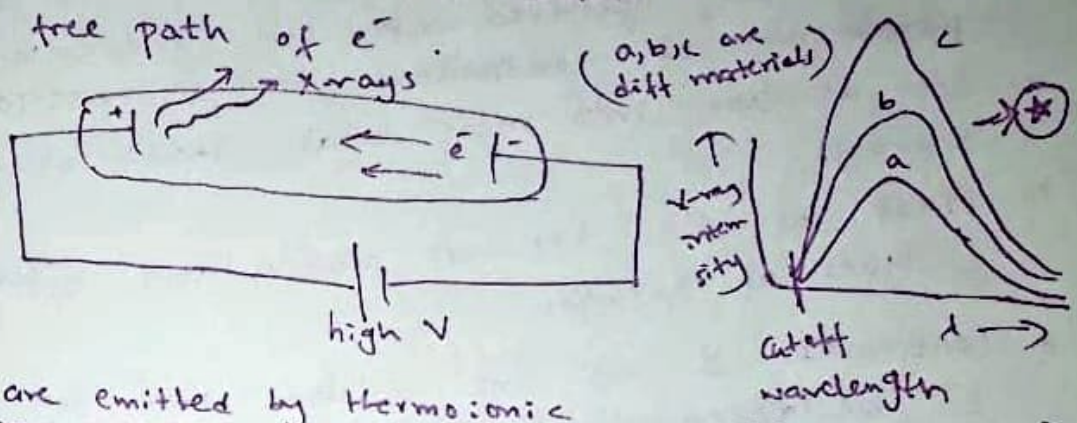 free path of e⁻.
x-rays
+
e⁻
-
high V
(a, b, c are
diff materials)
c
b
a
X-ray
inten
sity
λ →
cutoff
wavelength
are emitted by thermoionic